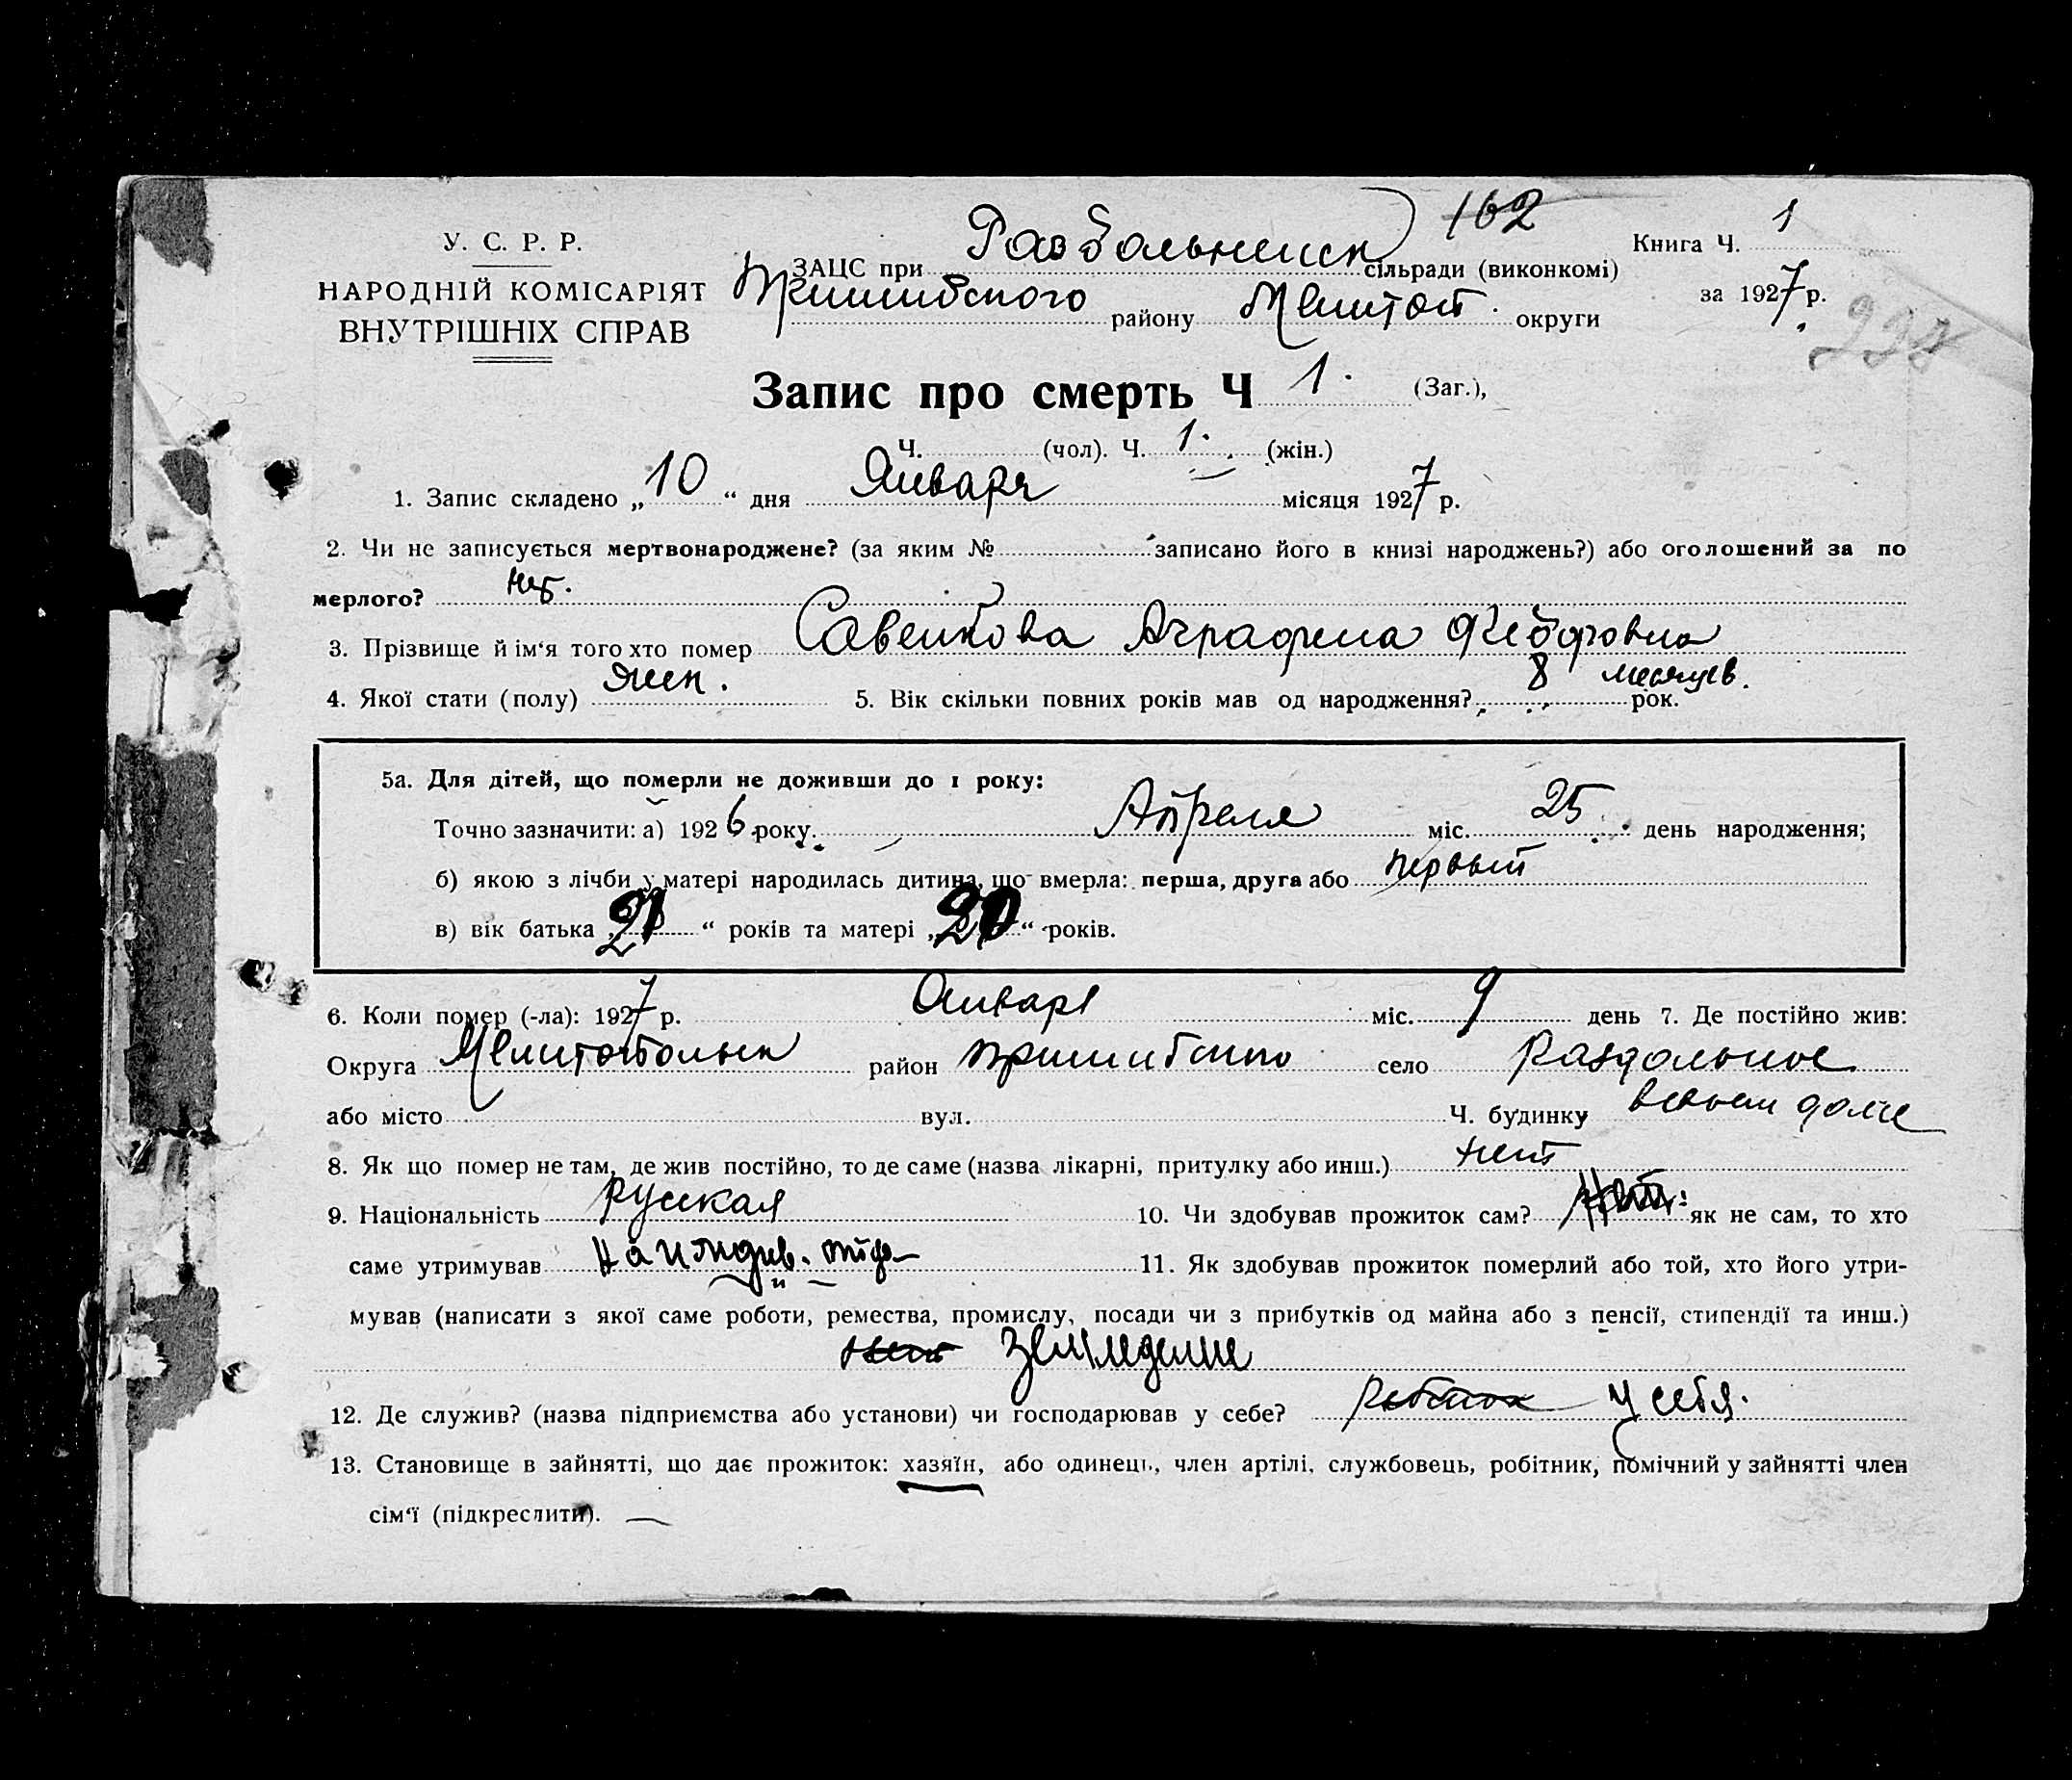 162
У. С. Р. Р.
НАРОДНІЙ КОМІСАРІЯТ
ВНУТРІШНІХ СПРАВ
ЗАЦС при Раздольненск сільради (виконкомі)
Пришибского району Мелитоп. округи
Книга Ч. 1
за 1927 р.
Запис про смерть Ч 1. (Заг.),
Ч. (чол). Ч. 1. (жін.)
1. Запис складено „10“ дня Января місяця 1927 р.
2. Чи не записується мертвонароджене? (за яким № записано його в книзі народжень?) або оголошений за по
мерлого? нет.
3. Прізвище й ім‘я того хто помер Савенкова Аграфена Федоровна
4. Якої статі (полу) Жен. 5. Вік скільки повних років мав од народження? 8 месяцев. рок.
5а. Для дітей, що померли не доживши до 1 року:
Точно зазначити: а) 1926 року. Апреля міс. 25 день народження;
б) якою з лічби у матері народилась дитина, що вмерла: перша, друга або первый
в) вік батька „21“ років та матері „20“ років.
6. Коли помер (-ла): 1927 р. Январь міс. 9 день 7. Де постійно жив:
Округа Мелитопольск район Пришибского село Раздольное
або місто вул. Ч. будинку в своем доме
8. Як що помер не там, де жив постійно, то де саме (назва лікарні, притулку або инш.) нет
9. Національність русская 10. Чи здобував прожиток сам? Нет. як не сам, то хто
саме утримував На иждив. отца 11. Як здобував прожиток померлий або той, хто його утри-
мував (написати з якої саме роботи, ремества, промислу, посади чи з прибутків од майна або з пенсії, стипендії та инш.)
нет Земледелие
12. Де служив? (назва підприємства або установи) чи господарював у себе? ребенок у себя.
13. Становище в зайнятті, що дає прожиток: хазяїн, або одинець, член артілі, службовець, робітник, помічний у зайнятті член
сім‘ї (підкреслити).